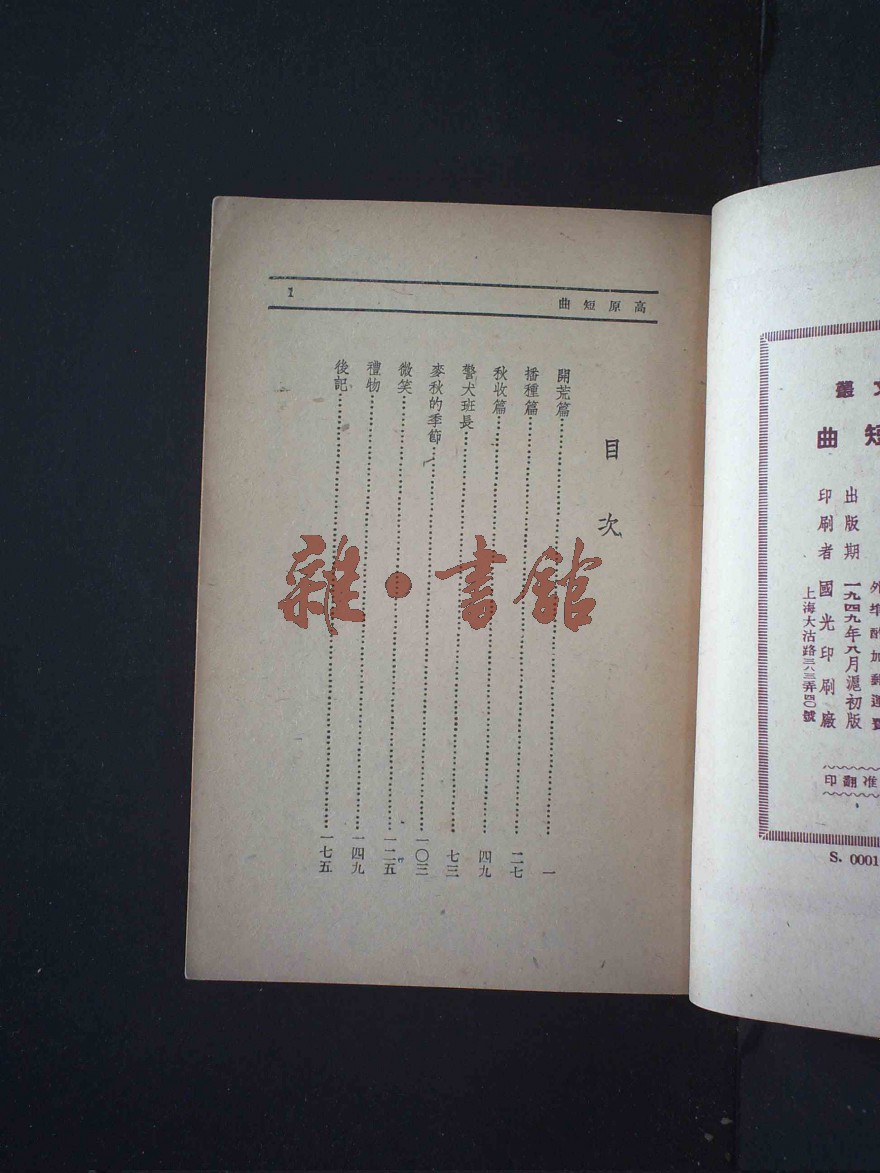 高原短曲
1
目次
開荒篇……一
播種篇……二七
秋收篇……四九
警犬班長……七三
麥秋的季節……一〇三
微笑……一二五
禮物……一四九
後記……一七五
雜·書館
文叢
短曲
出版期 一九四九年八月滬初版
印刷者 國光印刷廠
上海大沽路三八三弄四〇號
外埠酌加郵運費
准翻印
S. 0001